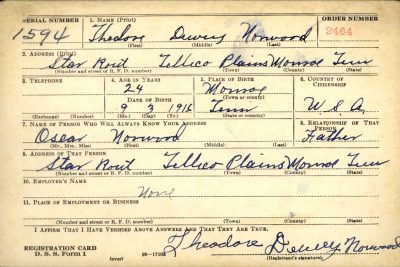 SERIAL NUMBER 1. NAME (Print) ORDER NUMBER
1594 Theodore Dewey Norwood 2464
(First) (Middle) (Last)
2. ADDRESS (Print)
Star Rout Tellico Plains Monroe Tenn
(Number and street or R. F. D. number) (Town) (County) (State)
3. TELEPHONE 4. AGE IN YEARS 5. PLACE OF BIRTH 6. COUNTRY OF CITIZENSHIP
24 Monroe
(Town or county)
DATE OF BIRTH
9 3 1916 Tenn U S A
(Exchange) (Number) (Mo.) (Day) (Yr.) (State or country)
7. NAME OF PERSON WHO WILL ALWAYS KNOW YOUR ADDRESS 8. RELATIONSHIP OF THAT PERSON
Oscar Norwood Father
(Mr., Mrs., Miss) (First) (Middle) (Last)
9. ADDRESS OF THAT PERSON
Star Rout Tellico Plains Monroe Tenn
(Number and street or R. F. D. number) (Town) (County) (State)
10. EMPLOYER'S NAME
None
11. PLACE OF EMPLOYMENT OR BUSINESS
(Number and street or R. F. D. number) (Town) (County) (State)
I AFFIRM THAT I HAVE VERIFIED ABOVE ANSWERS AND THAT THEY ARE TRUE.
Theodore Dewey Norwood
REGISTRATION CARD
D. S. S. Form 1 (over) (Registrant's signature)